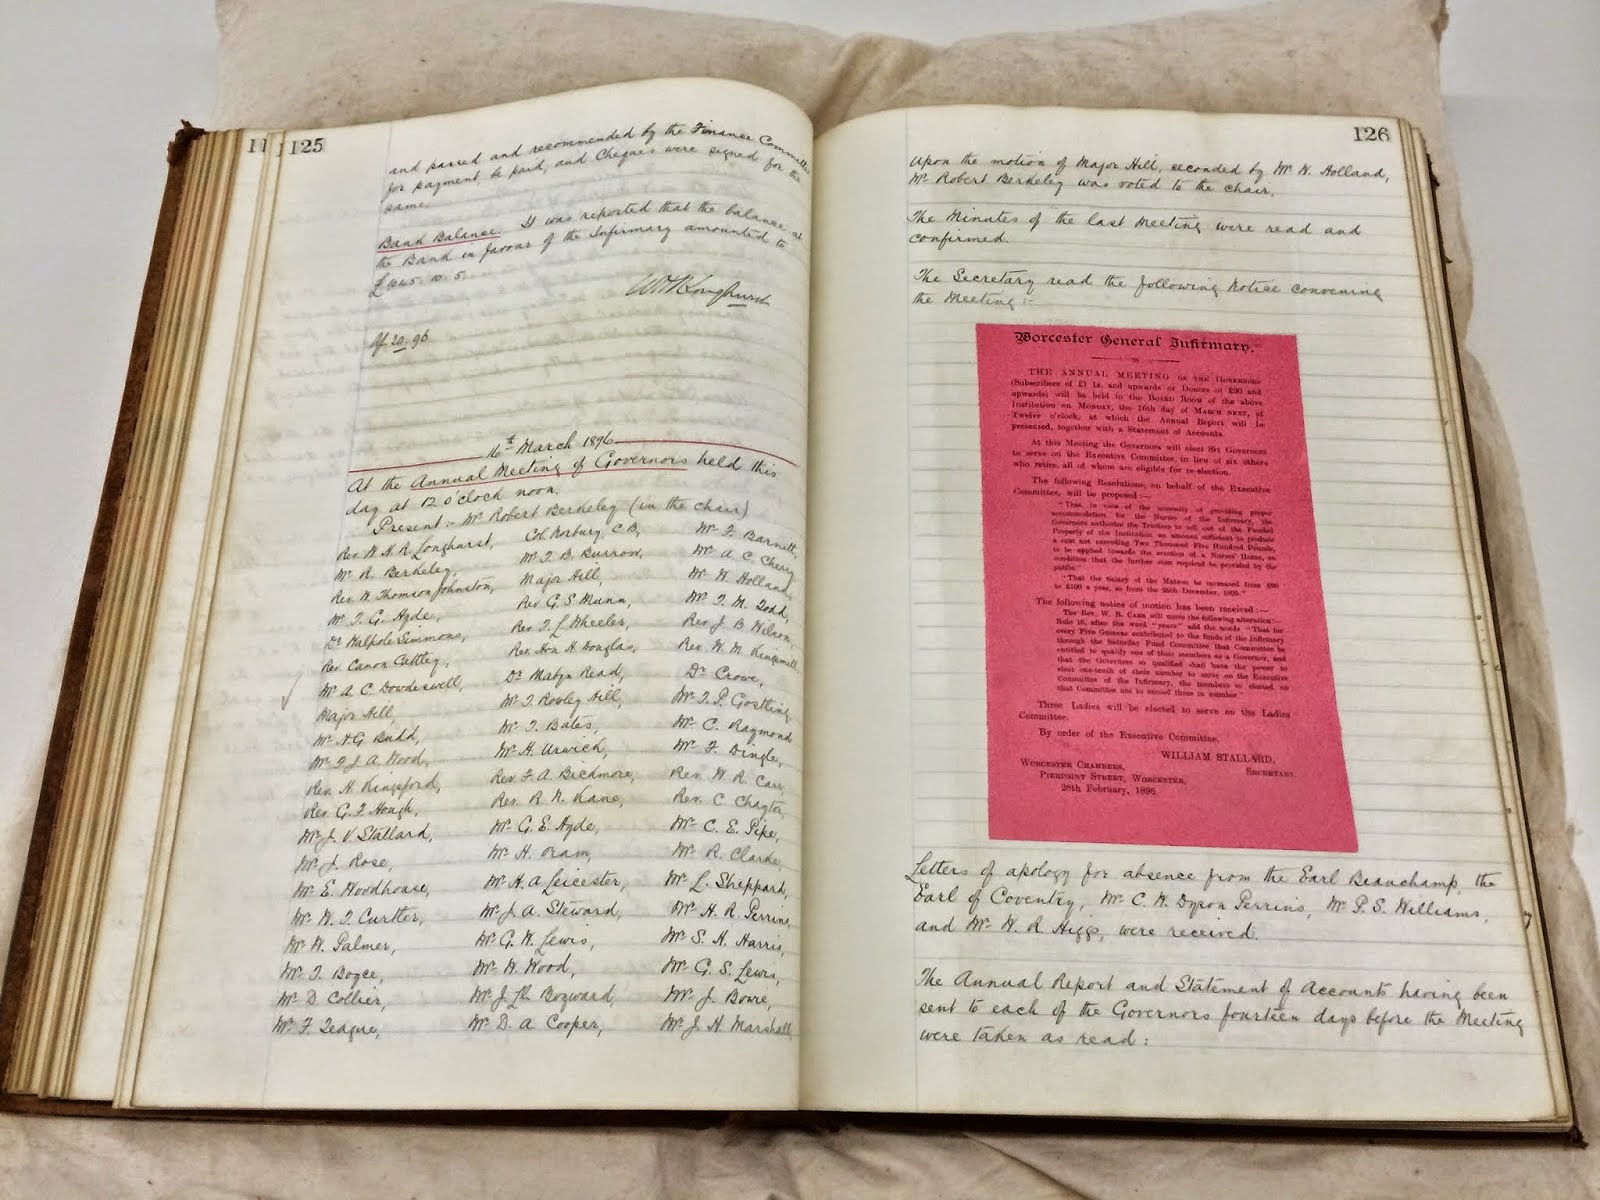 11
125
and passed and recommended by the Finance Committee
for payment, be paid, and Cheques were signed for the
same.
Bank Balance. It was reported that the balance at
the Bank in favour of the Infirmary amounted to
£1045. 10. 5.
WHRLonghurst
20. 96
16th March 1896
At the Annual Meeting of Governors held this
day at 12 o'clock noon.
Present:- Mr Robert Berkeley (in the chair)
Rev. W H R Longhurst, Col. Norbury, C.B, Mr F. Barnett,
Mr R. Berkeley, Mr T. B. Burrow, Mr A. C. Cherry,
Rev. W Thomson Johnston, Major Hill, Mr W. Holland,
Mr T. G. Hyde, Rev G. S. Munn, Mr T. M. Todd,
Dr Walpole Simmons, Rev. T. L. Wheeler, Rev J. B Wilson,
Rev. Canon Cattley, Rev. Hon H. Douglas, Rev. W. M. Kingsmill,
Mr A. C. Dowdeswell, Dr Mabyn Read, Dr Crowe,
Major Hill, Mr T. Rowley Hill, Mr T. P. Gostling,
Mr H G. Budd, Mr T. Bates, Mr C. Raymond
Mr T J. A. Wood, Mr H. Urwich, Mr F. Dingle,
Rev. H. Kingsford, Rev. F. A. Bickmore, Rev. W R. Carr,
Rev. G. F. Hough, Rev. R. N. Kane, Rev. C. Chaytor,
Mr J. V. Stallard, Mr G. E. Hyde, Mr C. E. Pipe,
Mr J. Rose, Mr H. Oram, Mr R. Clarke,
Mr E. Woodhouse, Mr H. A Leicester, Mr L. Sheppard,
Mr W. T. Curtler, Mr J. A. Steward, Mr H. R. Perrins,
Mr W. Palmer, Mr G. W. Lewis, Mr S. H. Harris,
Mr T. Boyce, Mr W. Wood, Mr G. S. Lewis,
Mr D. Collier, Mr J. Bozward, Mr J. Bowie,
Mr F. Teague, Mr D. A Cooper, Mr J. H. Marshall,
126
Upon the motion of Major Hill, seconded by Mr W. Holland,
Mr Robert Berkeley was voted to the chair.
The Minutes of the last Meeting were read and
confirmed.
The Secretary read the following Notice convening
the Meeting:-
Worcester General Infirmary.
THE ANNUAL MEETING OF THE GOVERNORS
(Subscribers of £1 1s. and upwards or Donors of £20 and
upwards) will be held in the BOARD ROOM of the above
Institution on MONDAY, the 16th day of MARCH NEXT, at
Twelve o'clock, at which the Annual Report will be
presented, together with a Statement of Accounts.
At this Meeting the Governors will elect Six Governors
to serve on the Executive Committee, in lieu of six others
who retire, all of whom are eligible for re-election.
The following Resolutions, on behalf of the Executive
Committee, will be proposed:—
"That in view of the necessity of providing proper
accommodation for the Nurses of the Infirmary, the
Governors authorize the Trustees to sell out of the Funded
Property of the Institution an amount sufficient to produce
a sum not exceeding Two Thousand Five Hundred Pounds,
to be applied towards the erection of a Nurses' Home, on
condition that the further sum required be provided by the
public"
"That the Salary of the Matron be increased from £90
to £100 a year, as from the 25th December, 1895."
The following notices of motion has been received:—
The Rev. W. R. CARR will move the following alteration:—
Rule 16, after the word "years" add the words "That for
every Five Guineas contributed to the funds of the Infirmary
through the Saturday Fund Committee that Committee be
entitled to qualify one of their members as a Governor, and
that the Governors so qualified shall have the power to
elect one-tenth of their number to serve on the Executive
Committee of the Infirmary, the members so elected on
that Committee not to exceed three in number."
Three Ladies will be elected to serve on the Ladies
Committee.
By order of the Executive Committee.
WILLIAM STALLARD,
SECRETARY.
WORCESTER CHAMBERS,
PIERPOINT STREET, WORCESTER,
28th February, 1896.
Letters of apology for absence from the Earl Beauchamp, the
Earl of Coventry, Mr C. W. Dyson Perrins, Mr P. S. Williams,
and Mr W. R Higgs, were received.
The Annual Report and Statement of Accounts having been
sent to each of the Governors fourteen days before the Meeting
were taken as read: